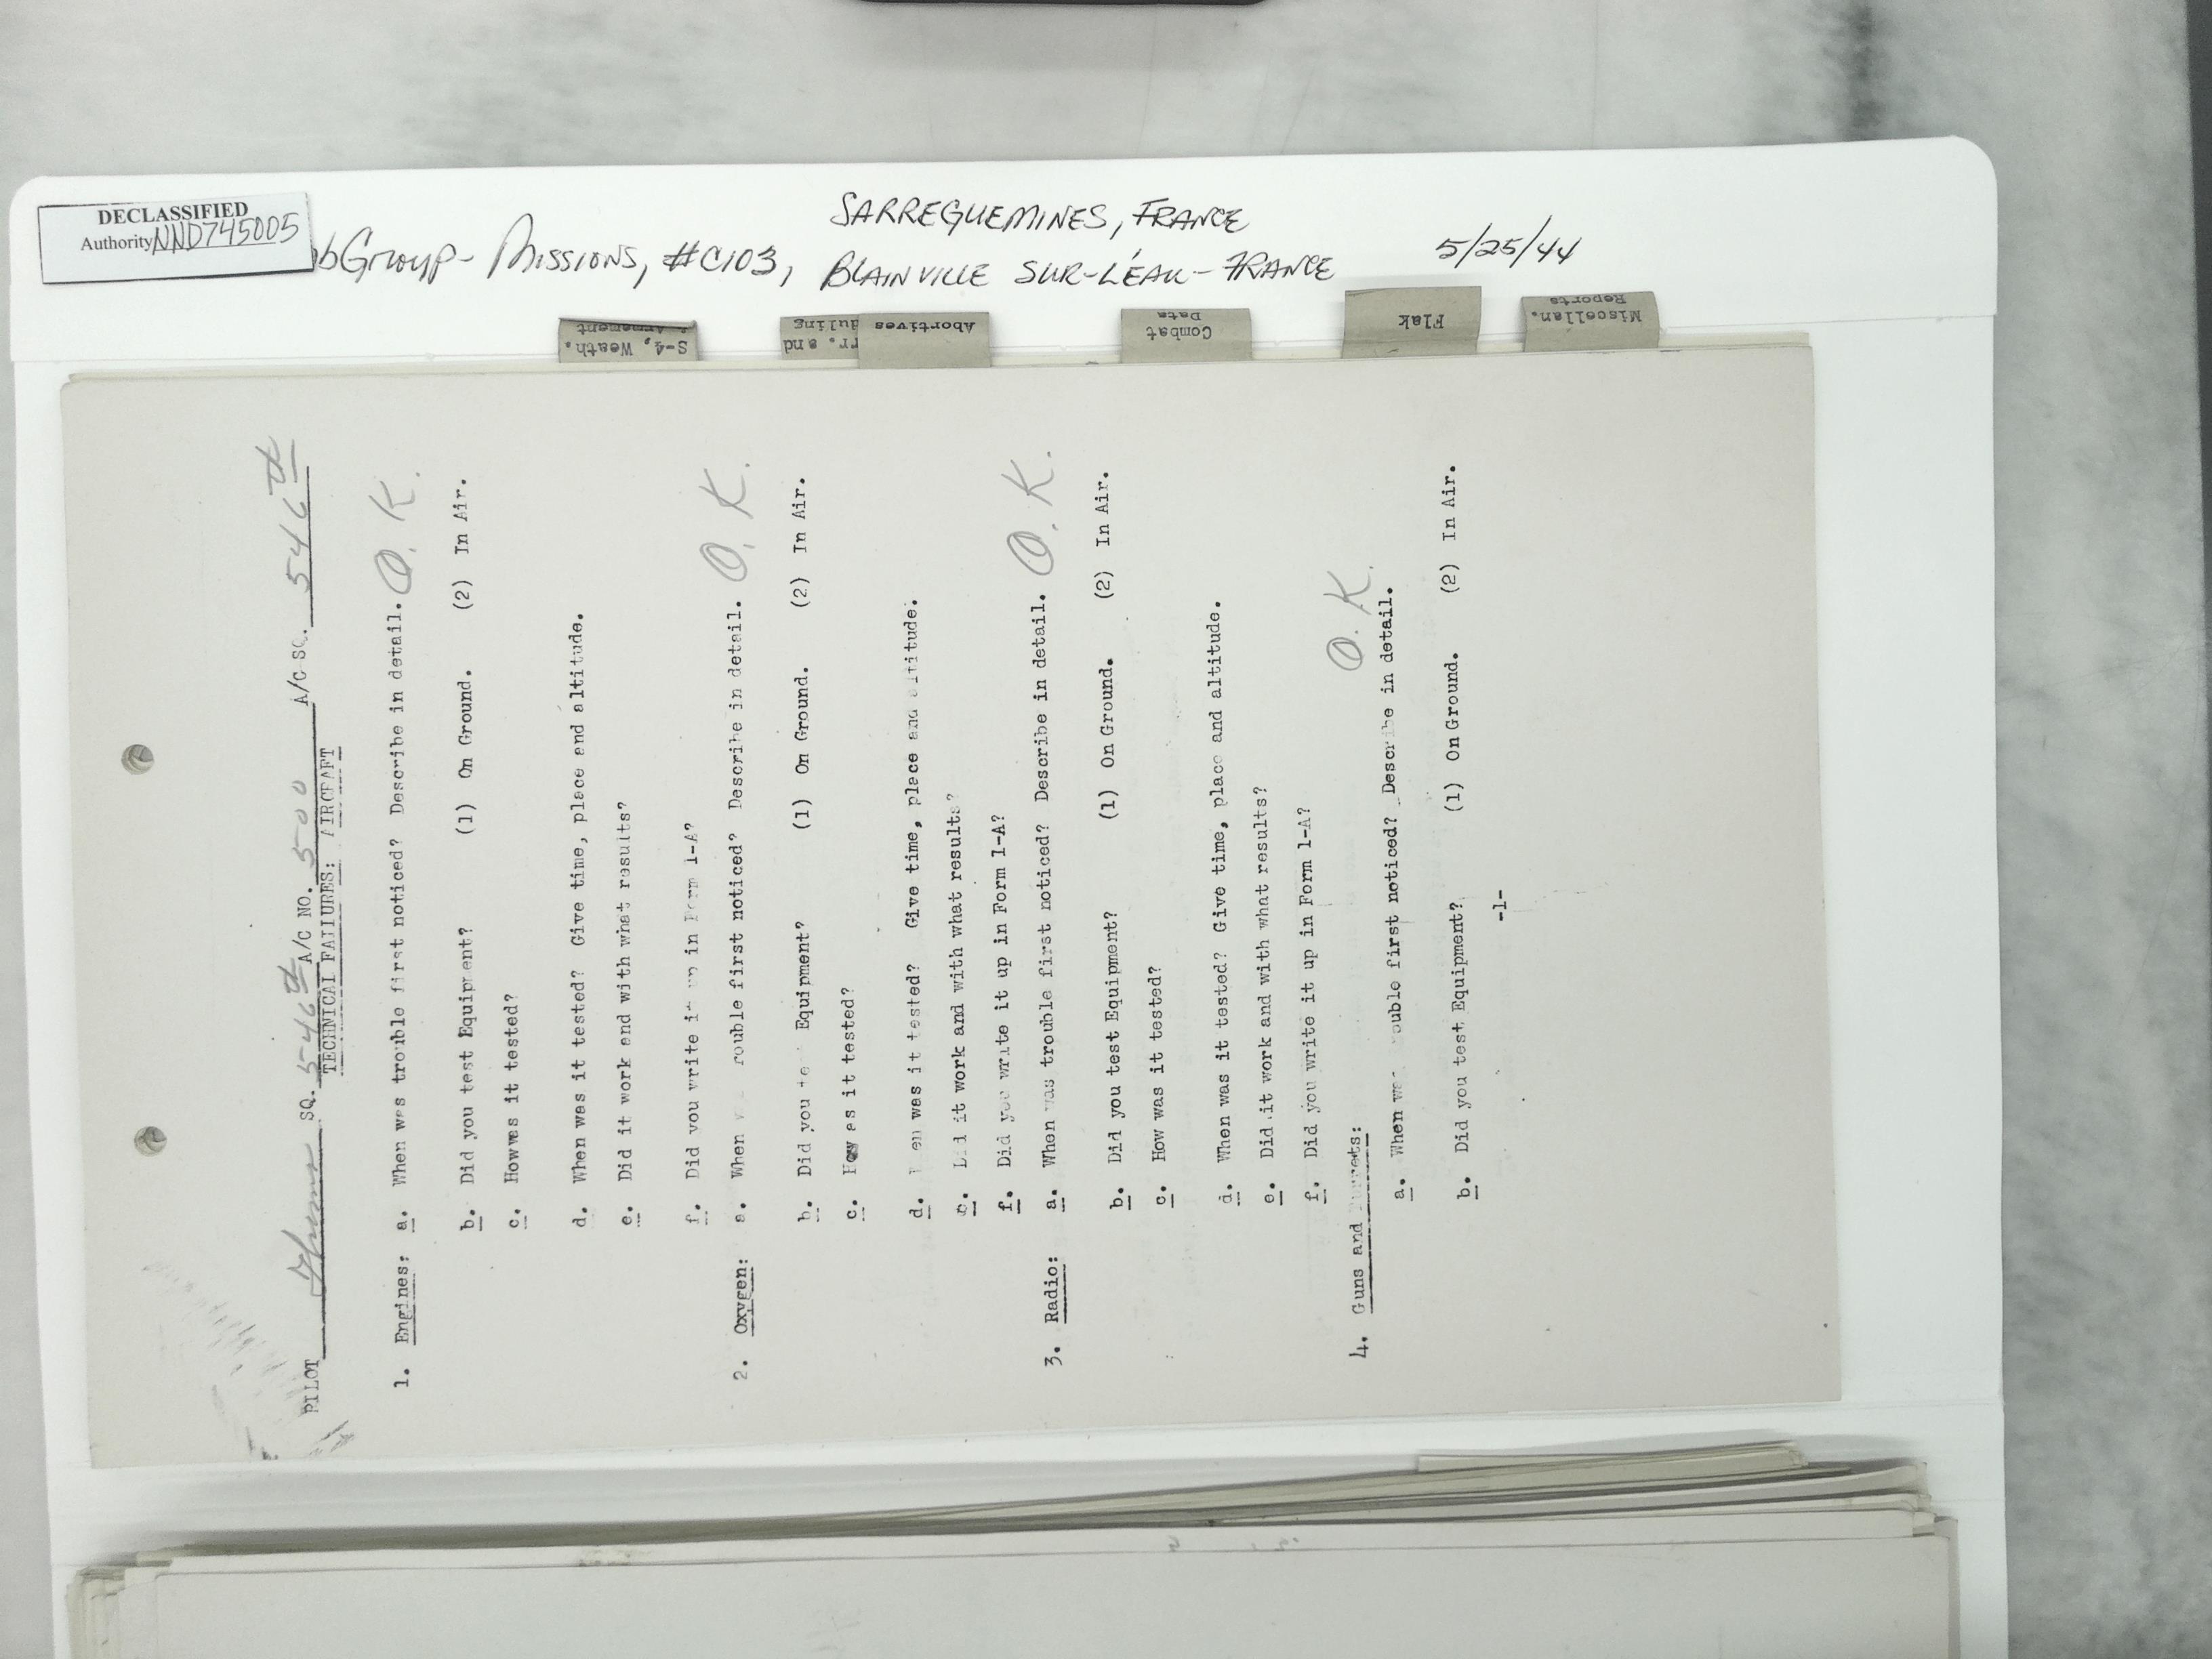 DECLASSIFIED
Authority NND745005
bGroup - Missions, #C103,
SARREGUEMINES, FRANCE
BLAINVILLE SUR-L'ÉAU - FRANCE
5/25/44
S-4, Weath.
& Armament
rr. and
duling
Abortives
Combat
Data
Flak
Miscellan.
Reports
PILOT SQ. 546th A/C NO. 500 A/C SQ. 546th
TECHNICAL FAILURES: AIRCRAFT
1. Engines: a. When was trouble first noticed? Describe in detail. O.K.
b. Did you test Equipment? (1) On Ground. (2) In Air.
c. Howwas it tested?
d. When was it tested? Give time, place and altitude.
e. Did it work and with what results?
f. Did you write it up in Form 1-A?
2. Oxygen: a. When w rouble first noticed? Describe in detail. O.K.
b. Did you te Equipment? (1) On Ground. (2) In Air.
c. How as it tested?
d. W en was it tested? Give time, place and altitude.
e. Did it work and with what results?
f. Did you write it up in Form 1-A?
3. Radio: a. When was trouble first noticed? Describe in detail. O.K.
b. Did you test Equipment? (1) On Ground. (2) In Air.
c. How was it tested?
d. When was it tested? Give time, place and altitude.
e. Did it work and with what results?
f. Did you write it up in Form 1-A?
4. Guns and Turrets: O.K.
a. When wa ouble first noticed? Describe in detail.
b. Did you test Equipment? (1) On Ground. (2) In Air.
-1-